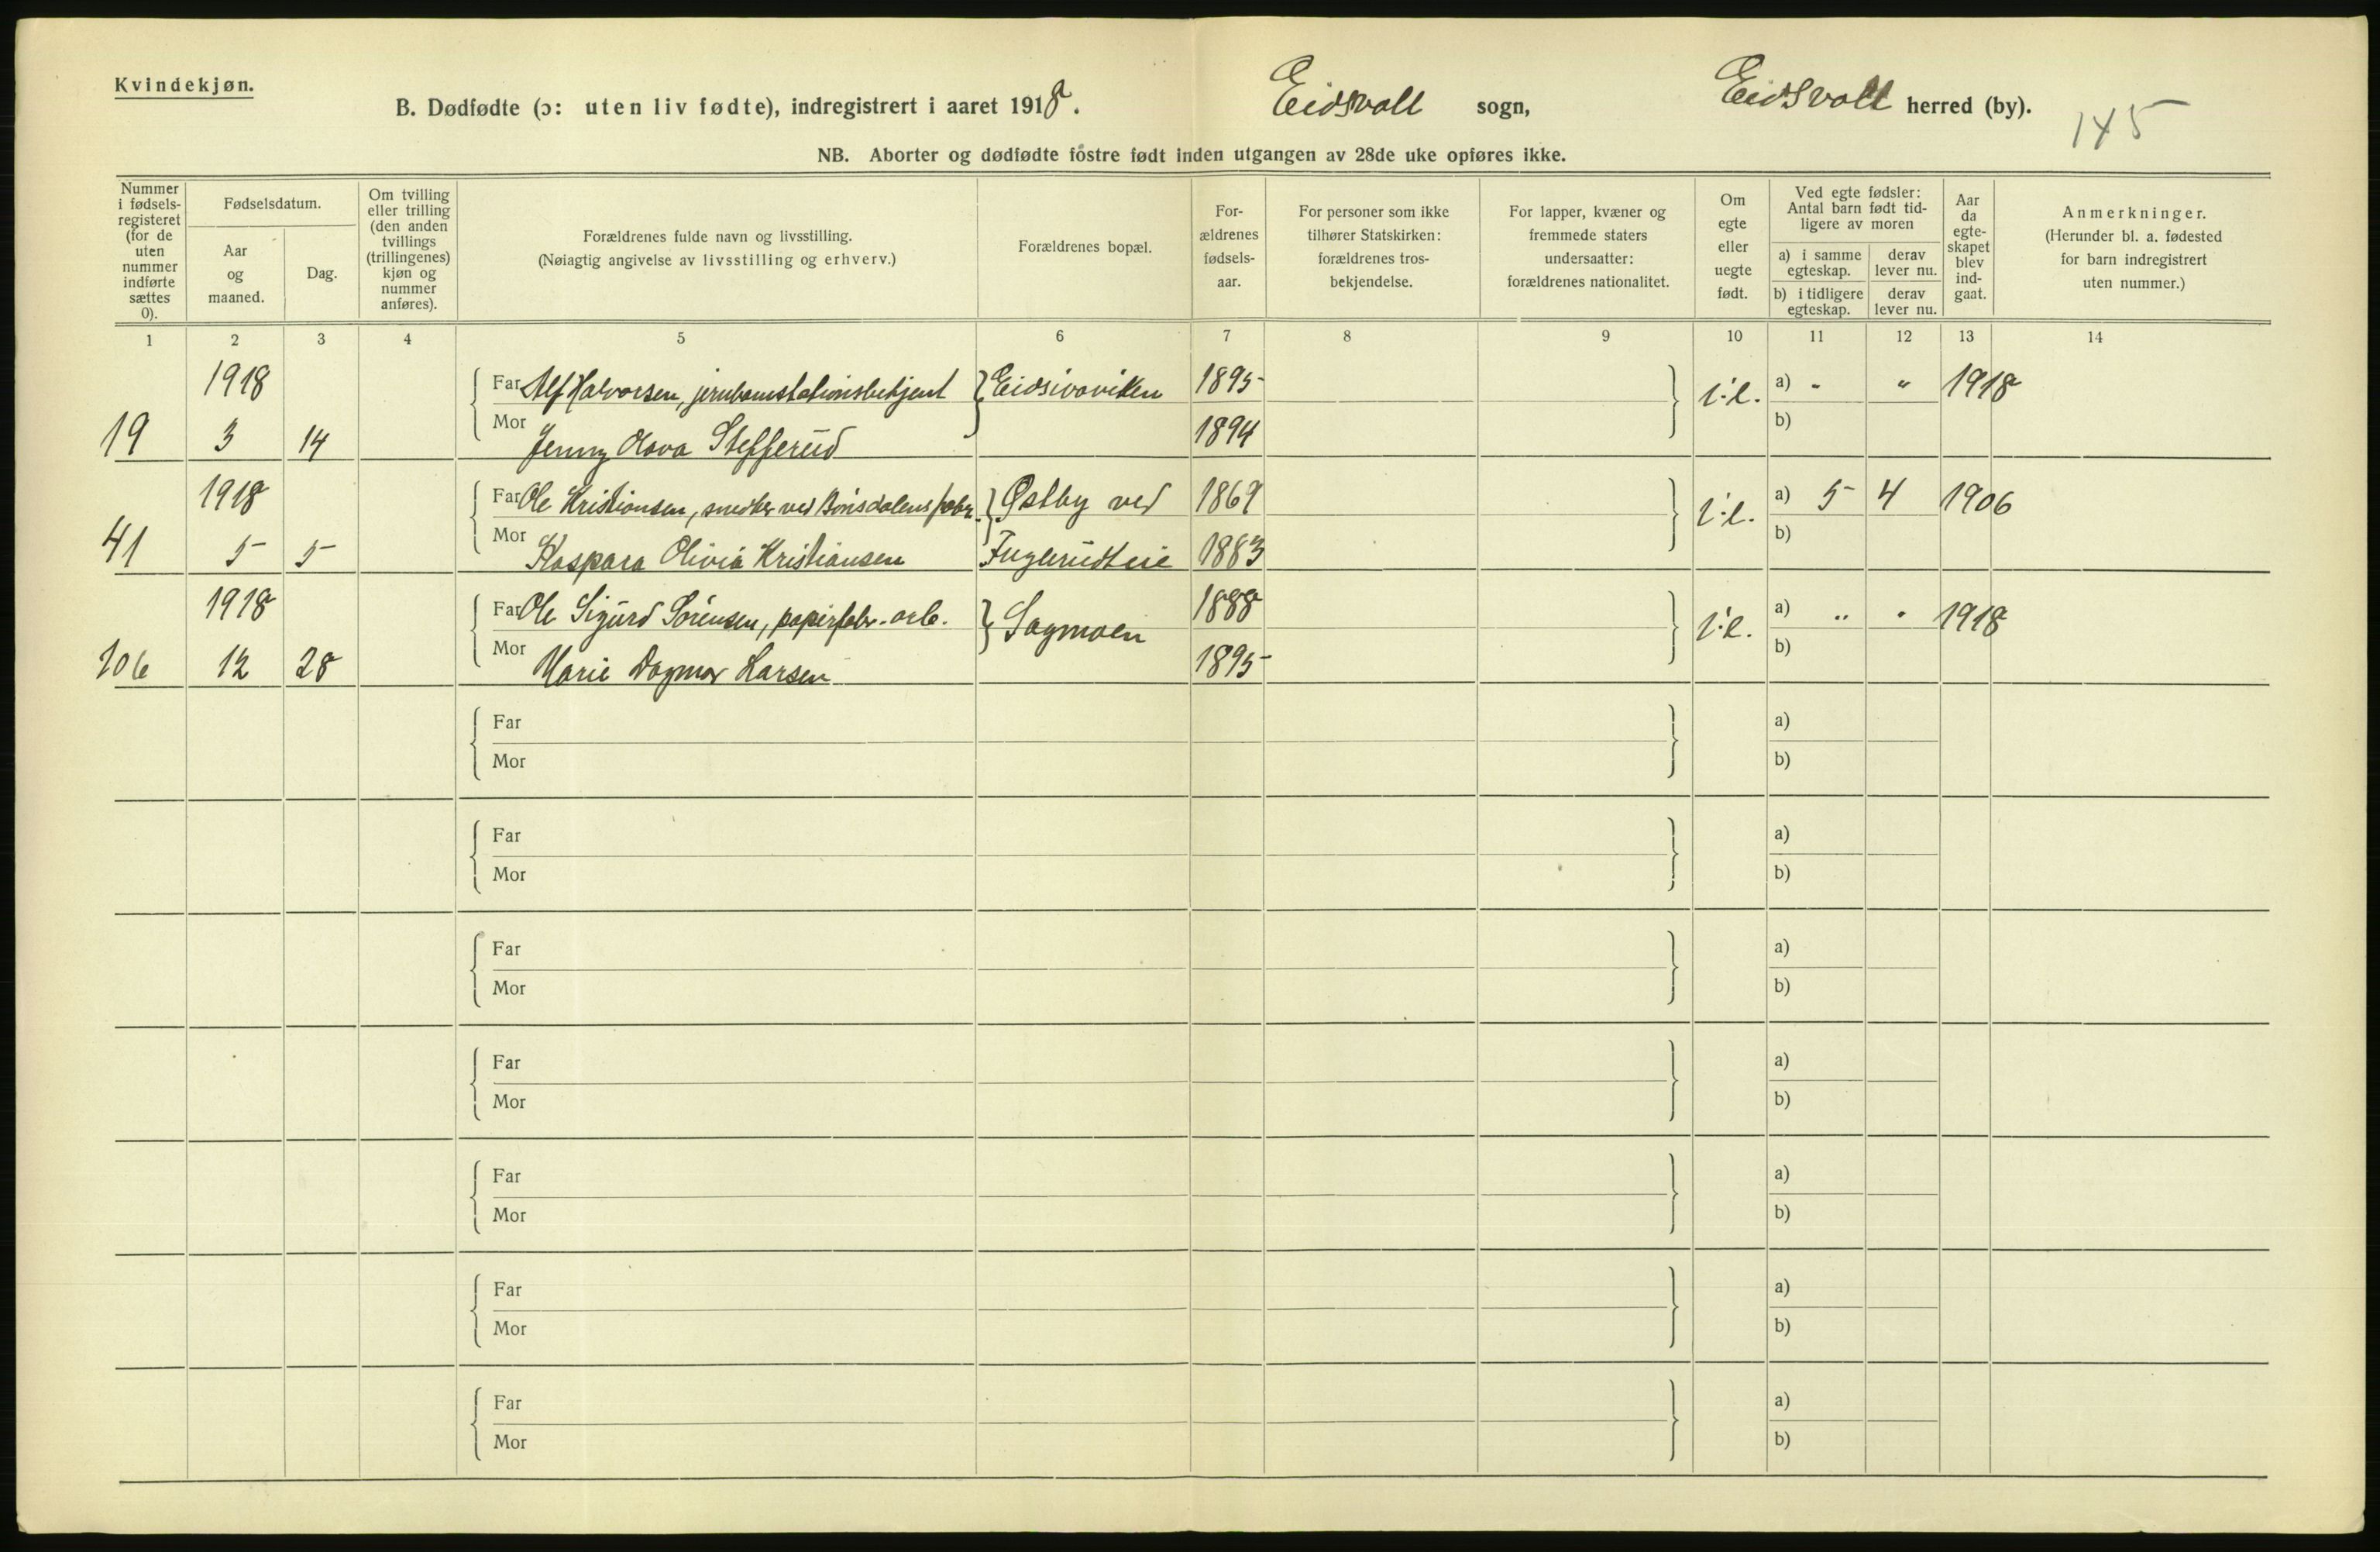 Kvindekjøn.
B. Dødfødte (ɔ: uten liv fødte), indregistrert i aaret 1918. Eidsvoll sogn, Eidsvoll herred (by).
145
NB. Aborter og dødfødte fostre født inden utgangen av 28de uke opføres ikke.
Nummer i fødsels-registeret (for de uten nummer indførte sættes 0).
Fødselsdatum.
Aar og maaned.
Dag.
Om tvilling eller trilling (den anden tvillings (trillingenes) kjøn og nummer anføres).
Forældrenes fulde navn og livsstilling.
(Nøiagtig angivelse av livsstilling og erhverv.)
Forældrenes bopæl.
For-ældrenes fødsels-aar.
For personer som ikke tilhører Statskirken: forældrenes tros-bekjendelse.
For lapper, kvæner og fremmede staters undersaatter: forældrenes nationalitet.
Om egte eller uegte født.
Ved egte fødsler: Antal barn født tid-ligere av moren
a) i samme egteskap.
derav lever nu.
b) i tidligere egteskap.
derav lever nu.
Aar da egte-skapet blev ind-gaat.
Anmerkninger.
(Herunder bl. a. fødested for barn indregistrert uten nummer.)
1 2 3 4 5 6 7 8 9 10 11 12 13 14
1918 Far Alf Halvorsen, jernbanestationsbetjent Eidsivaviken 1895 a) " " 1918
19 3 14 Mor Jenny Olava Stefferud 1894 b)
1918 Far Ole Kristiansen, snedker ved fabr. Østby ved 1869 a) 5 4 1906
41 5 5 Mor Kaspara Olivia Kristiansen 1883 b)
1918 Far Ole Sigurd Sørensen, papirfabr. arb. Sagmoen 1888 a) " " 1918
106 12 28 Mor Marie Dagmar Larsen 1895 b)
Far a)
Mor b)
Far a)
Mor b)
Far a)
Mor b)
Far a)
Mor b)
Far a)
Mor b)
Far a)
Mor b)
Far a)
Mor b)